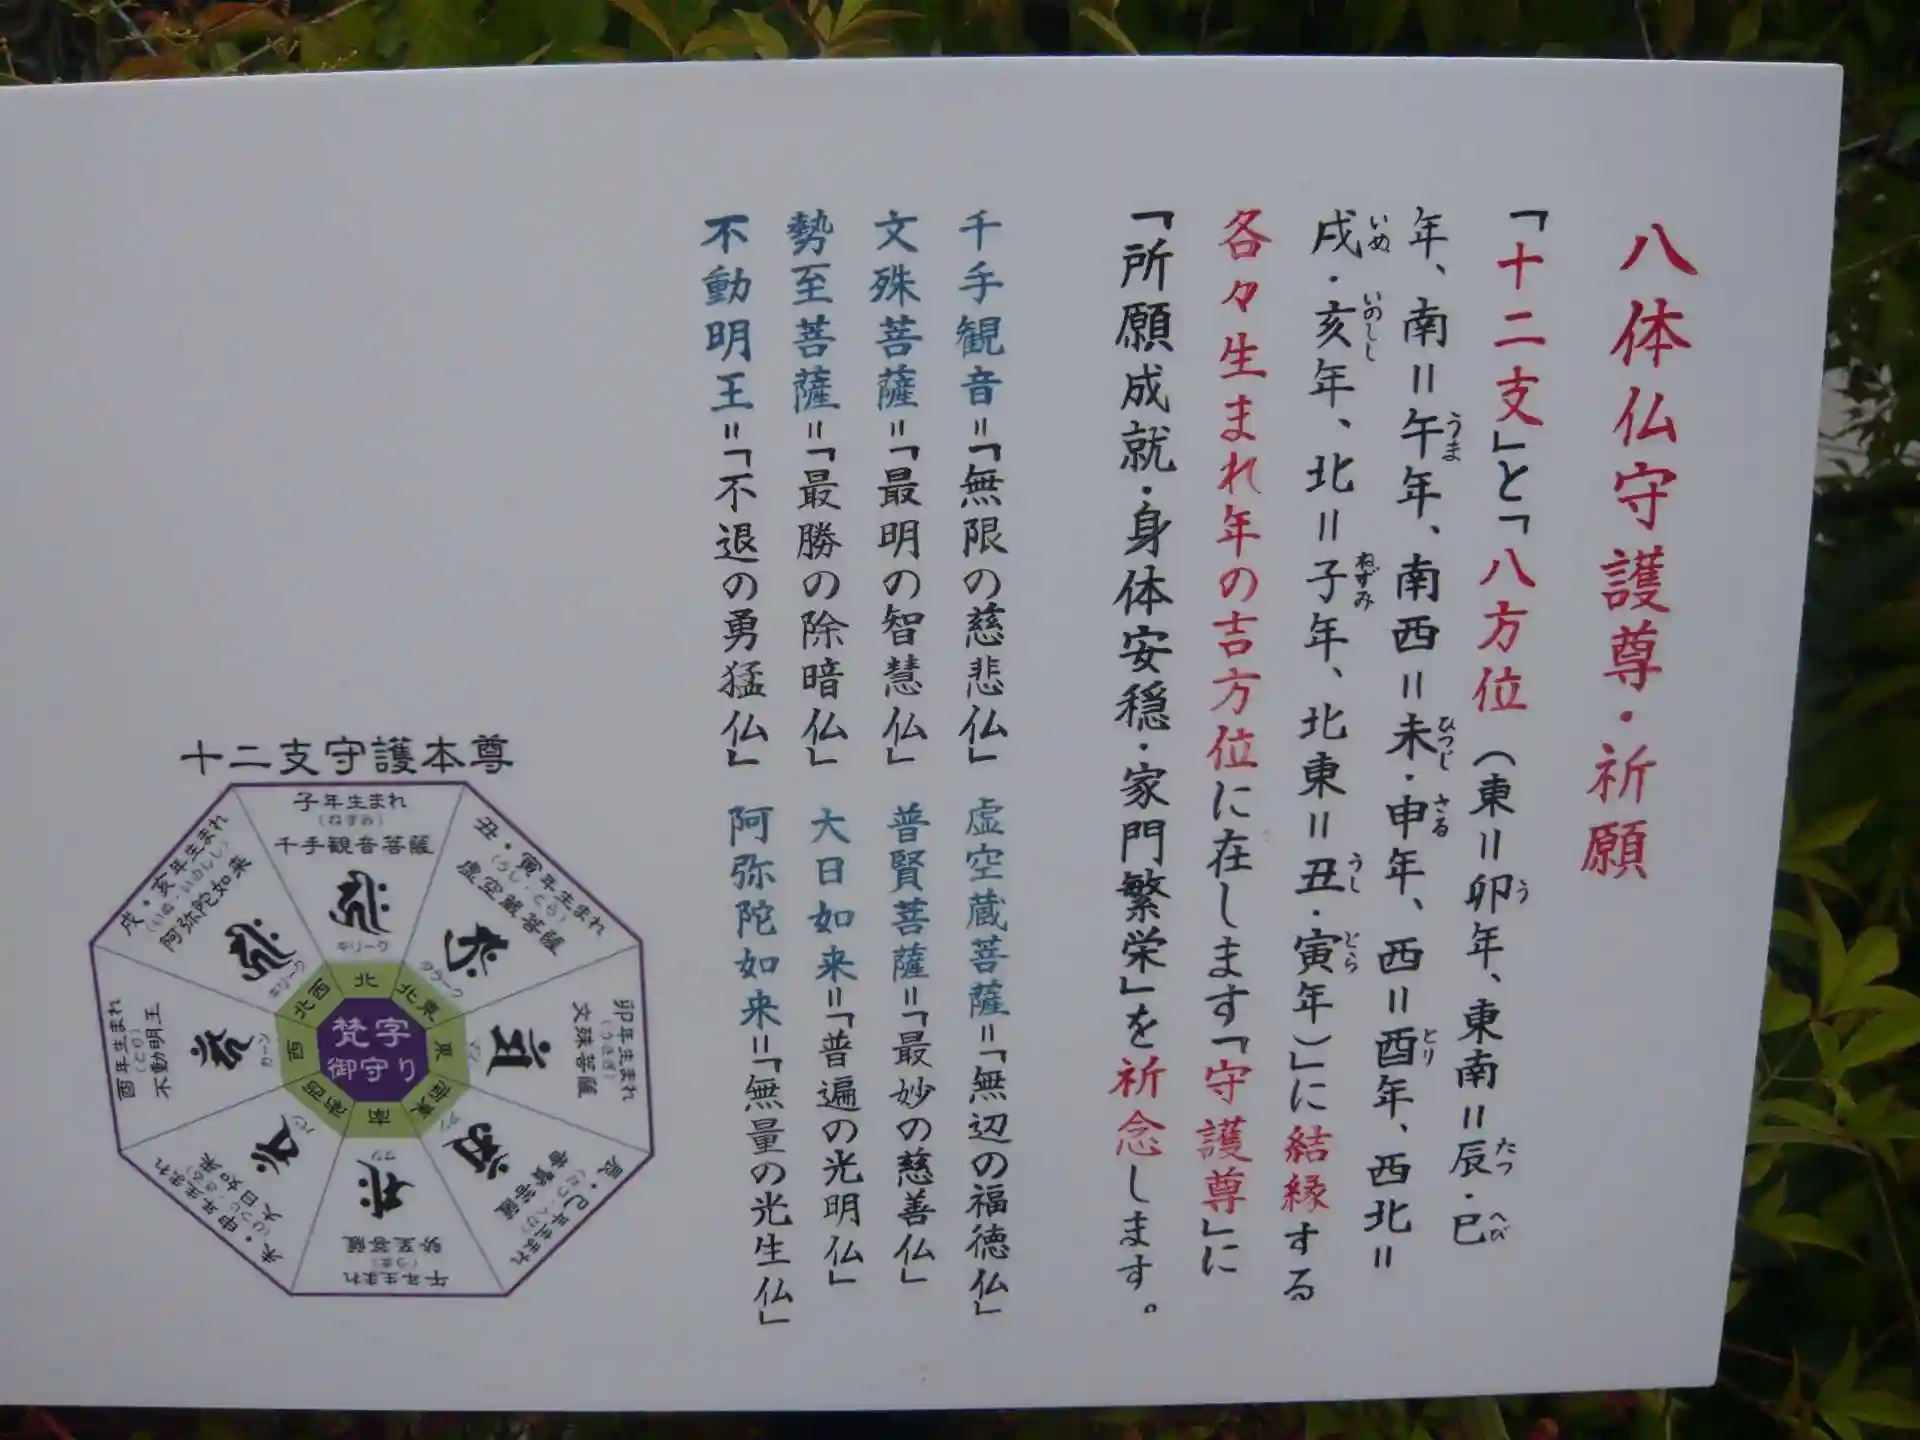 八体仏守護尊・祈願
「十二支」と「八方位（東＝卯年、東南＝辰・巳
う
たつ
へび
年、南＝午年、南西＝未・申年、西＝酉年、西北＝
うま
ひつじ
さる
とり
戌・亥年、北＝子年、北東＝丑・寅年）」に結縁する
いぬ
いのしし
ねずみ
うし
とら
各々生まれ年の吉方位に在します「守護尊」に
「所願成就・身体安穏・家門繁栄」を祈念します。
千手観音＝「無限の慈悲仏」 虚空蔵菩薩＝「無辺の福徳仏」
文殊菩薩＝「最明の智慧仏」 普賢菩薩＝「最妙の慈善仏」
勢至菩薩＝「最勝の除暗仏」 大日如来＝「普遍の光明仏」
不動明王＝「不退の勇猛仏」 阿弥陀如来＝「無量の光生仏」
十二支守護本尊
子年生まれ
(ねずみ)
千手観音菩薩
キリーク
北
丑・寅年生まれ
(うし・とら)
虚空蔵菩薩
タラーク
北東
卯年生まれ
(うさぎ)
文殊菩薩
マン
東
辰・巳年生まれ
(たつ・へび)
普賢菩薩
アン
南東
午年生まれ
(うま)
勢至菩薩
サク
南
未・申年生まれ
(ひつじ・さる)
大日如来
バン
南西
酉年生まれ
(とり)
不動明王
カーン
西
戌・亥年生まれ
(いぬ・いのしし)
阿弥陀如来
キリーク
北西
梵字
御守り